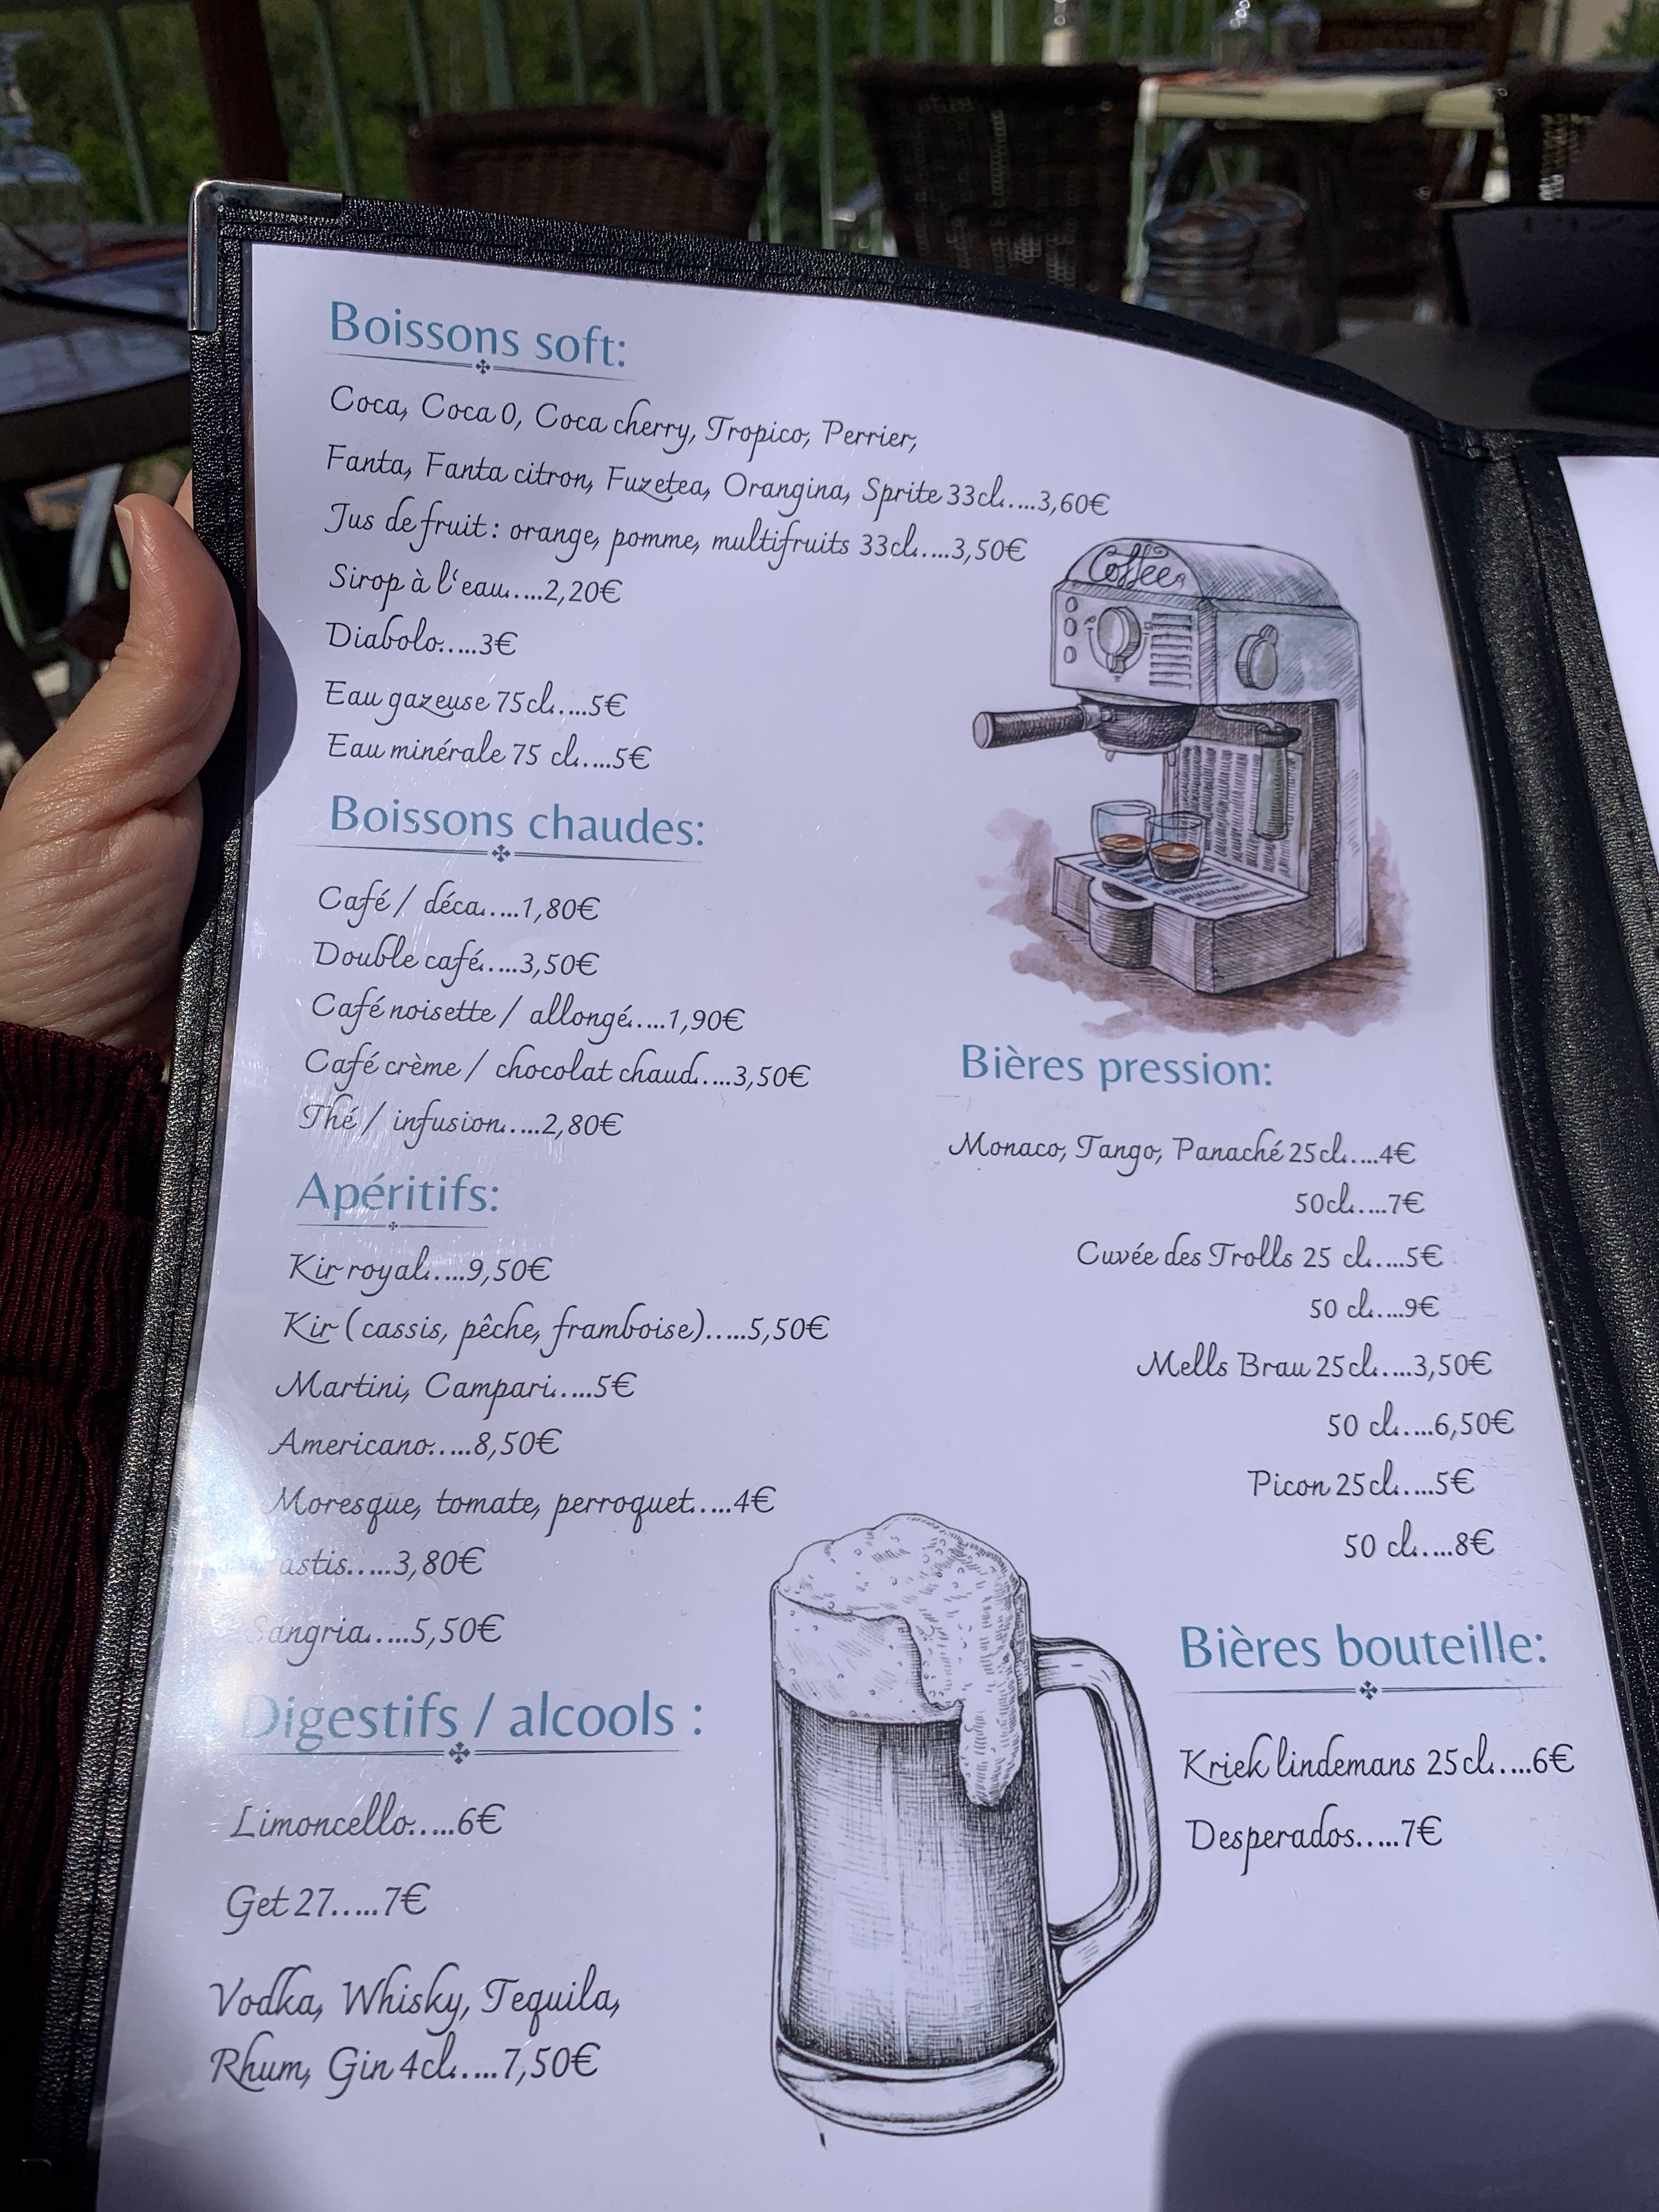 Boissons soft:
Coca, Coca 0, Coca cherry, Tropico, Perrier,
Fanta, Fanta citron, Fuzetea, Orangina, Sprite 33cl.....3,60€
Jus de fruit : orange, pomme, multifruits 33cl.....3,50€
Sirop à l'eau.....2,20€
Diabolo.....3€
Eau gazeuse 75cl.....5€
Eau minérale 75 cl.....5€
Coffee
Boissons chaudes:
Café / déca.....1,80€
Double café.....3,50€
Café noisette / allongé.....1,90€
Café crème / chocolat chaud.....3,50€
Thé / infusion.....2,80€
Apéritifs:
Kir royal.....9,50€
Kir (cassis, pêche, framboise).....5,50€
Martini, Campari.....5€
Americano.....8,50€
Moresque, tomate, perroquet.....4€
astis.....3,80€
Sangria.....5,50€
Digestifs / alcools :
Limoncello.....6€
Get 27.....7€
Vodka, Whisky, Tequila,
Rhum, Gin 4cl.....7,50€
Bières pression:
Monaco, Tango, Panaché 25cl.....4€
50cl.....7€
Cuvée des Trolls 25 cl.....5€
50 cl.....9€
Mells Brau 25cl.....3,50€
50 cl.....6,50€
Picon 25cl.....5€
50 cl.....8€
Bières bouteille:
Kriek lindemans 25cl.....6€
Desperados.....7€